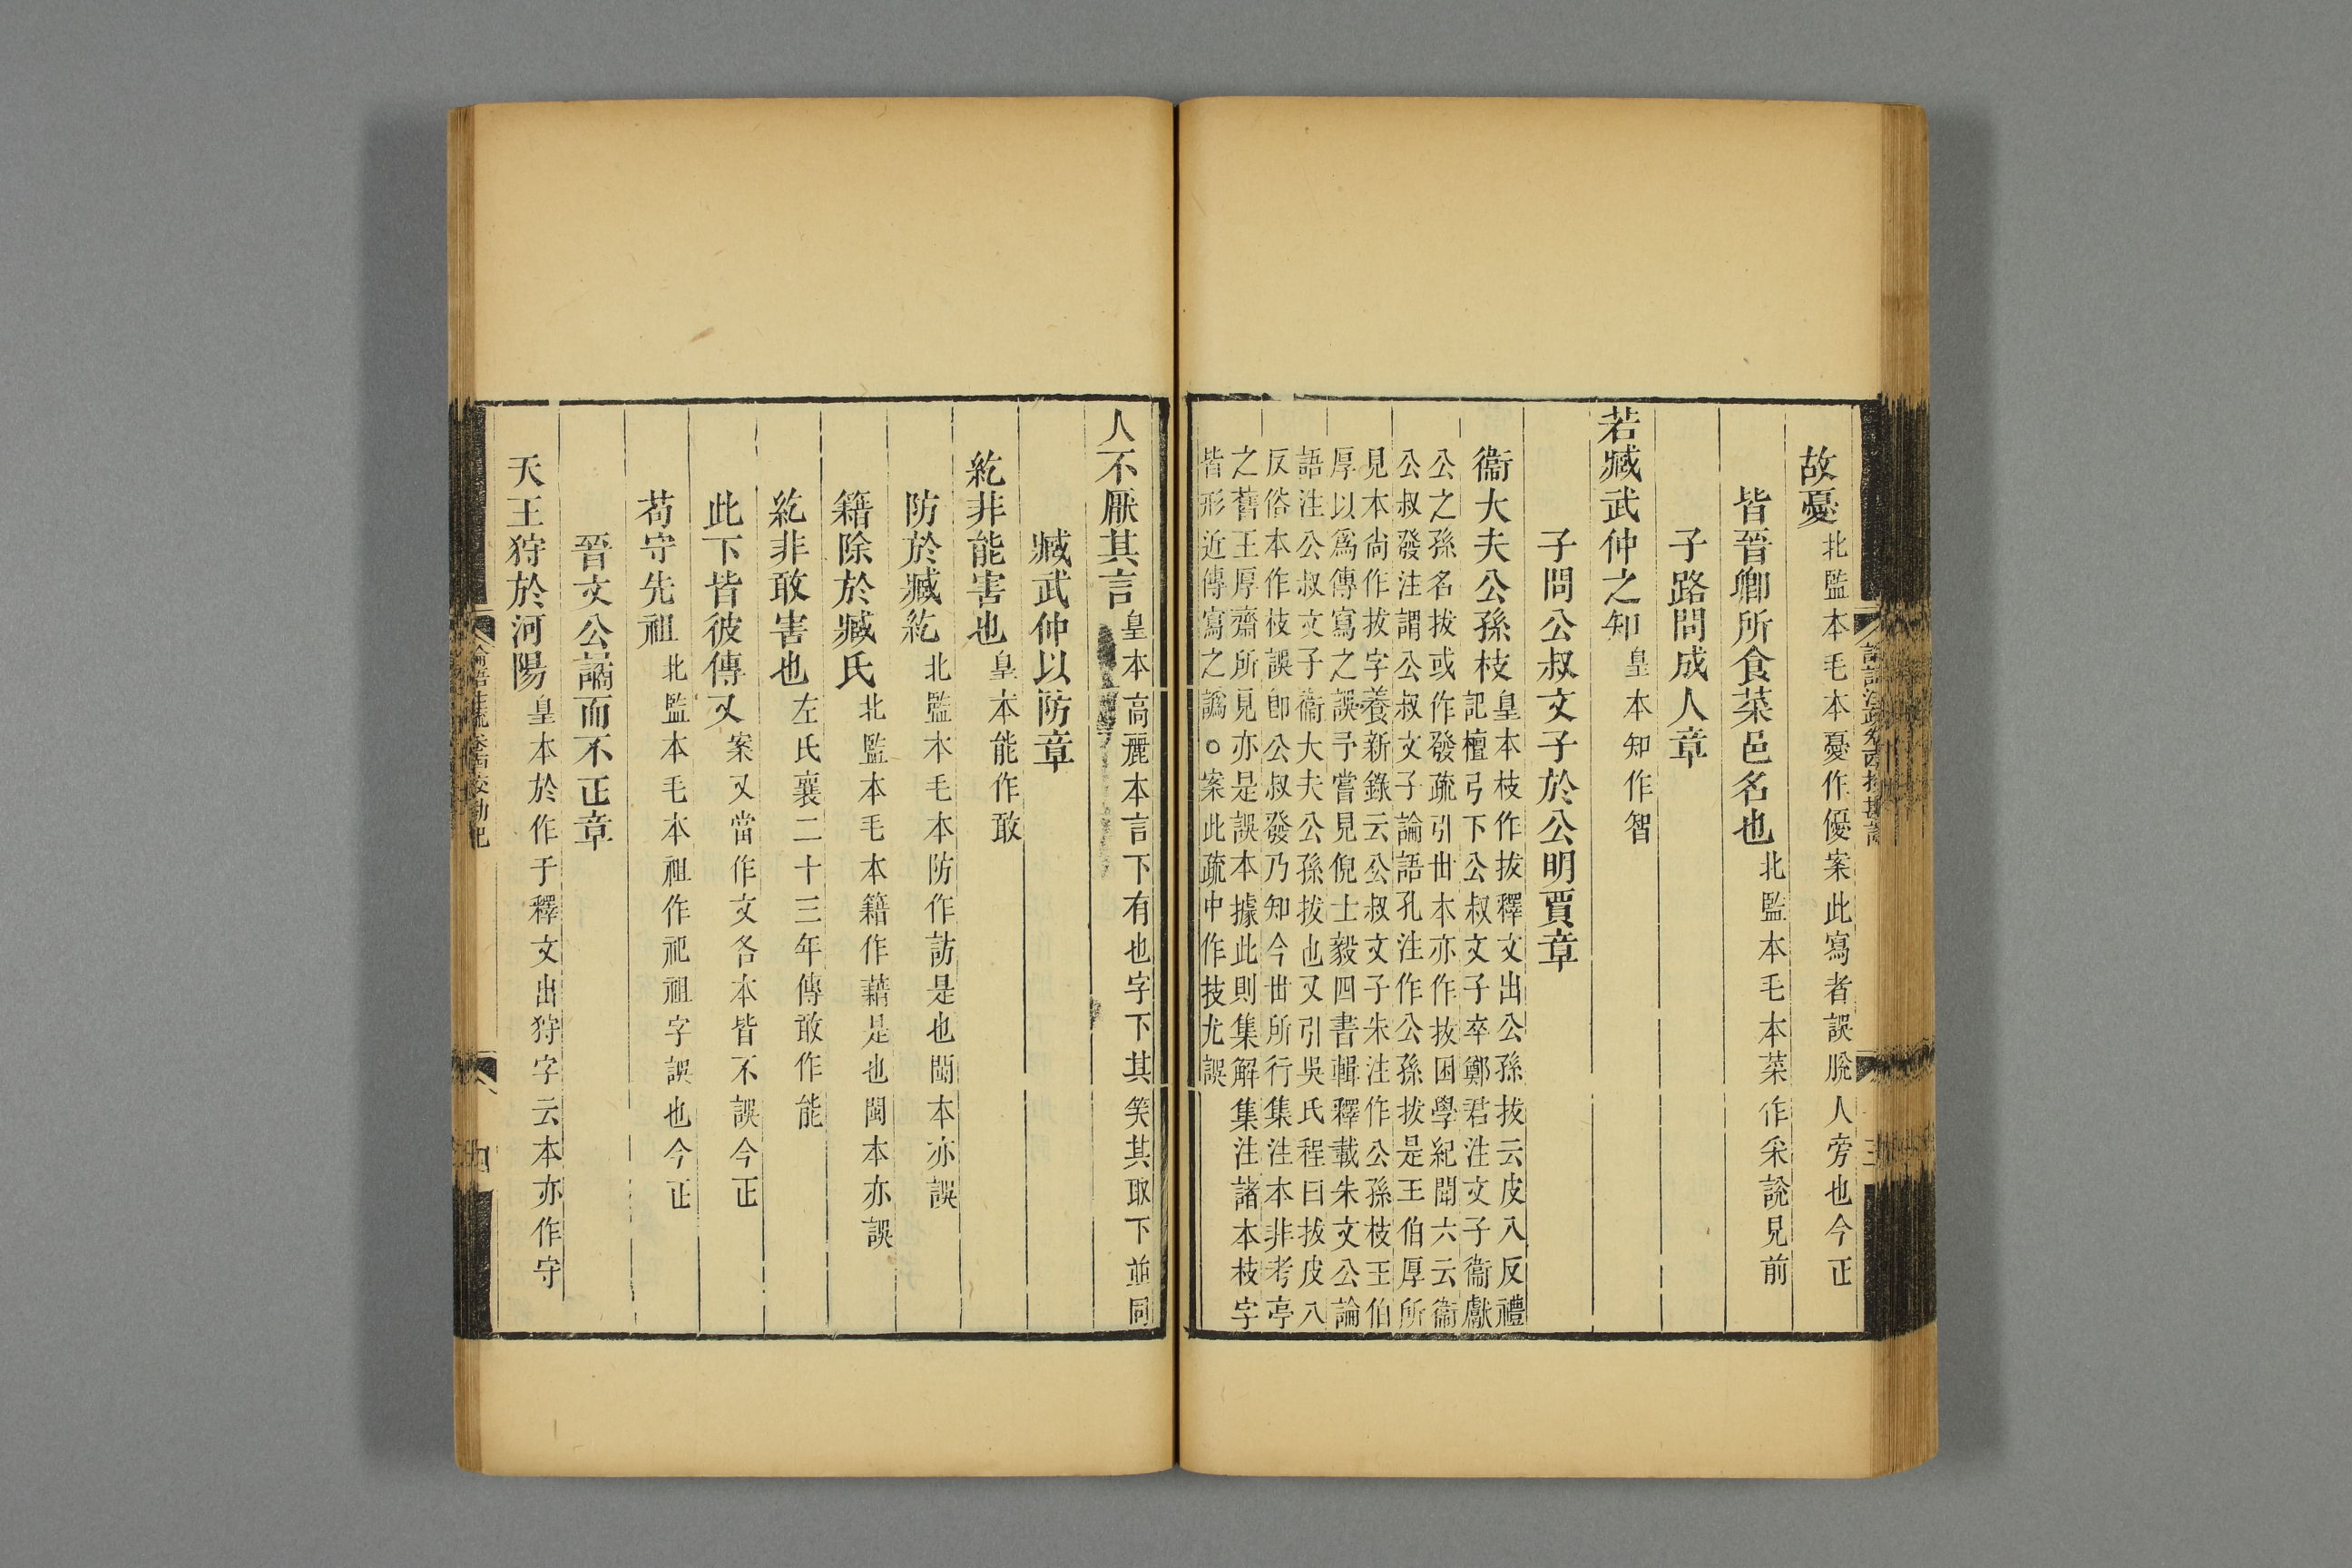 故憂北監本毛本憂作優案此寫者誤脫人旁也今正
皆晉卿所食菜邑名也北監本毛本菜作采說見前
子路問成人章
若臧武仲之知皇本知作智
子問公叔文子於公明賈章
衞大夫公孫枝皇本枝作拔釋文出公孫拔云皮八反禮
記檀弓下公叔文子卒鄭君注文子衞獻
公之孫名拔或作發疏引世本亦作拔困學紀聞六云衞
公叔發注謂公叔文子論語孔注作公孫拔是王伯厚所
見本尙作拔字養新錄云公叔文子朱注作公孫枝王伯
厚以爲傳寫之誤予嘗見倪士毅四書輯釋載朱文公論
語注公叔文子衞大夫公孫拔也又引吳氏程曰拔皮八
反俗本作枝誤卽公叔發乃知今世所行集注本非考亭
之舊王厚齋所見亦是誤本據此則集解集注諸本枝字
皆形近傳寫之譌○案此疏中作技尤誤
人不厭其言皇本高麗本言下有也字下其笑其取下並同
臧武仲以防章
紇非能害也皇本能作敢
防於臧紇北監本毛本防作訪是也閩本亦誤
籍除於臧氏北監本毛本籍作藉是也閩本亦誤
紇非敢害也左氏襄二十三年傳敢作能
此下皆彼傳又案又當作文各本皆不誤今正
苟守先祖北監本毛本祖作祀祖字誤也今正
晉文公譎而不正章
天王狩於河陽皇本於作于釋文出狩字云本亦作守